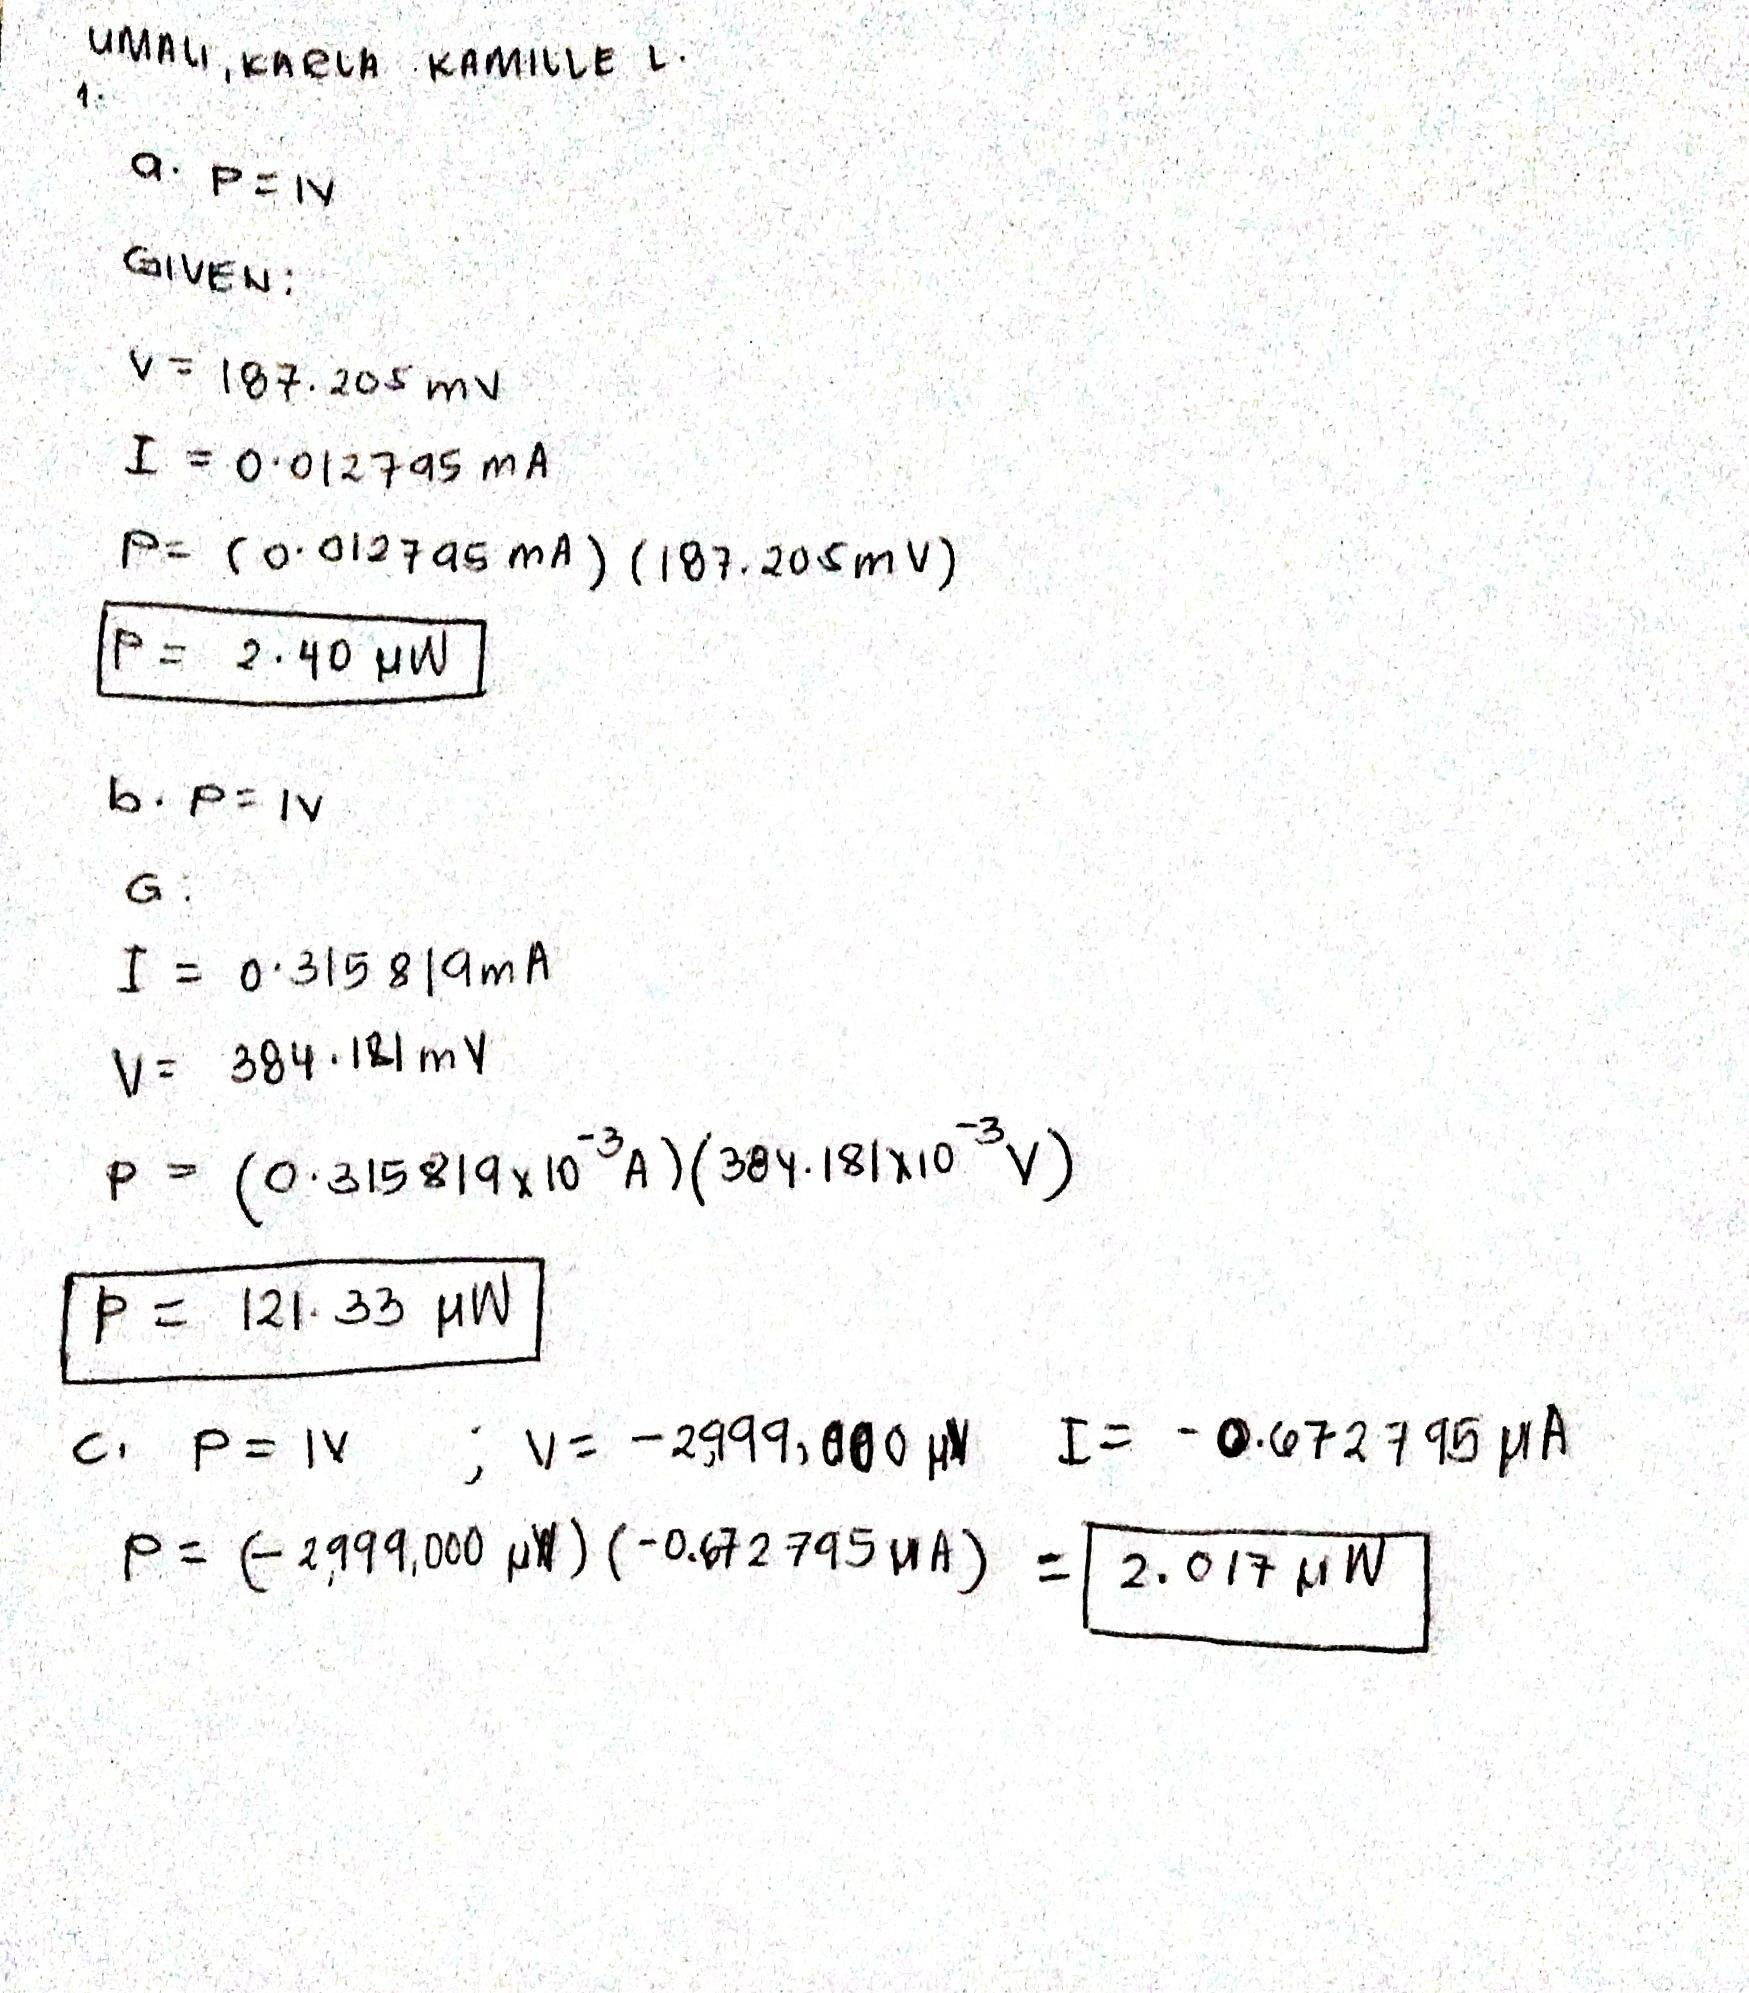 UMALI, KARLA KAMILLE L.
1.
a. P = IV
GIVEN:
V = 187.205 mV
I = 0.012795 mA
P = (0.012795 mA) (187.205 mV)
P = 2.40 μW
b. P = IV
G:
I = 0.315819 mA
V = 384.181 mV
P = (0.315819 x 10⁻³ A) (384.181 x 10⁻³ V)
P = 121.33 μW
c. P = IV ; V = -2,999,000 μV I = -0.672795 μA
P = (-2,999,000 μV) (-0.672795 μA) = 2.017 μW